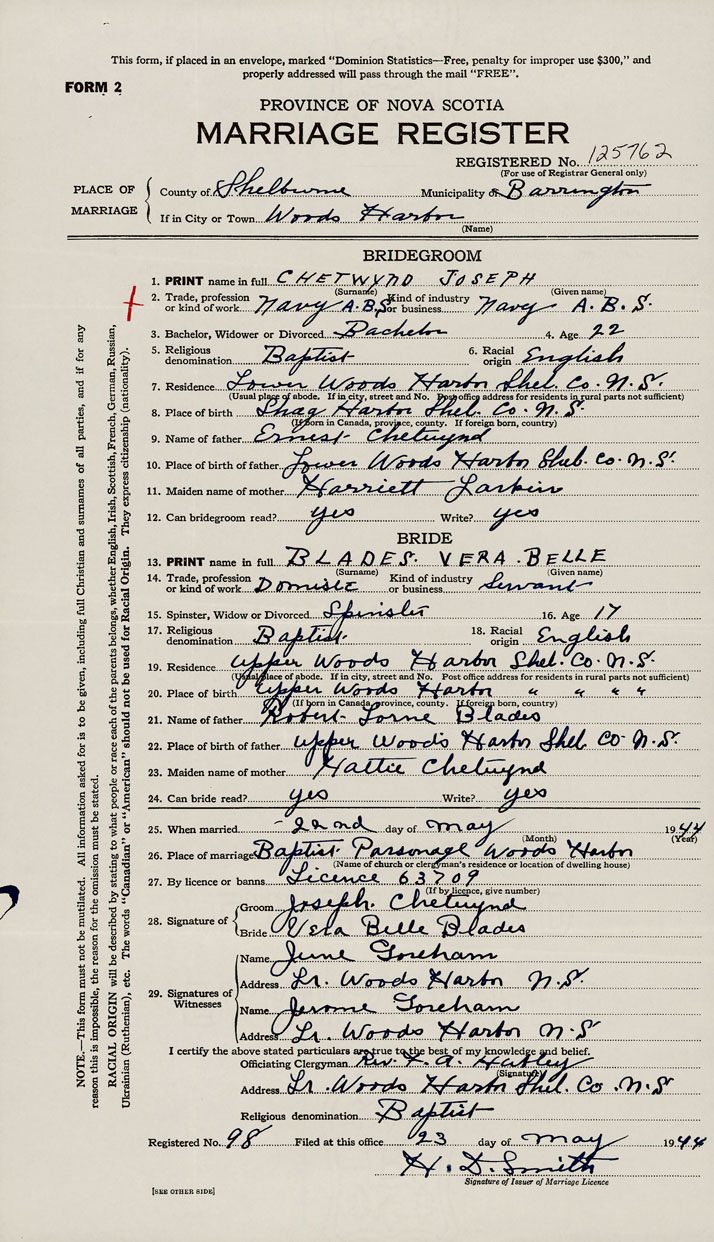 This form, if placed in an envelope, marked "Dominion Statistics—Free, penalty for improper use $300," and
properly addressed will pass through the mail "FREE".
FORM 2
PROVINCE OF NOVA SCOTIA
MARRIAGE REGISTER
REGISTERED No. 125762
(For use of Registrar General only)
PLACE OF MARRIAGE
County of Shelburne Municipality of Barrington
If in City or Town Woods Harbor
(Name)
BRIDEGROOM
1. PRINT name in full CHETWYND JOSEPH
(Surname) (Given name)
2. Trade, profession or kind of work Navy A.B.S. Kind of industry or business Navy A.B.S.
3. Bachelor, Widower or Divorced Bachelor 4. Age 22
5. Religious denomination Baptist 6. Racial origin English
7. Residence Lower Woods Harbor Shel. Co. N.S.
(Usual place of abode. If in city, street and No. Post office address for residents in rural parts not sufficient)
8. Place of birth Shag Harbor Shel. Co. N.S.
(If born in Canada, province, county. If foreign born, country)
9. Name of father Ernest Chetwynd
10. Place of birth of father Lower Woods Harbor Shel. Co. N.S.
11. Maiden name of mother Harriett Larkin
12. Can bridegroom read? yes Write? yes
BRIDE
13. PRINT name in full BLADES. VERA BELLE
(Surname) (Given name)
14. Trade, profession or kind of work Domistc Kind of industry or business Servant
15. Spinster, Widow or Divorced Spinster 16. Age 17
17. Religious denomination Baptist 18. Racial origin English
19. Residence Upper Woods Harbor Shel. Co. N.S.
(Usual place of abode. If in city, street and No. Post office address for residents in rural parts not sufficient)
20. Place of birth Upper Woods Harbor " " " "
(If born in Canada, province, county. If foreign born, country)
21. Name of father Robert Lorne Blades
22. Place of birth of father Upper Woods Harbor Shel. Co. N.S.
23. Maiden name of mother Hattie Chetwynd
24. Can bride read? yes Write? yes
25. When married 22nd day of May 1944
(Month) (Year)
26. Place of marriage Baptist Parsonage Woods Harbor
(Name of church or clergyman's residence or location of dwelling house)
27. By licence or banns Licence 63709
(If by licence, give number)
28. Signature of
Groom Joseph Chetwynd
Bride Vera Belle Blades
29. Signatures of Witnesses
Name June Goreham
Address Lr. Woods Harbor N.S.
Name Jerome Goreham
Address Lr. Woods Harbor N.S
I certify the above stated particulars are true to the best of my knowledge and belief.
Officiating Clergyman Rev. A.
(Signature)
Address Lr. Woods Harbor Shel. Co. N.S.
Religious denomination Baptist
Registered No. 98 Filed at this office 23 day of May 1944
H. D. Smith
Signature of Issuer of Marriage Licence
[SEE OTHER SIDE]
NOTE.—This form must not be mutilated. All information asked for is to be given, including full Christian and surnames of all parties, and if for any
reason this is impossible, the reason for the omission must be stated.
RACIAL ORIGIN will be described by stating to what people or race each of the parents belongs, whether English, Irish, Scottish, French, German, Russian,
Ukrainian (Ruthenian), etc. The words "Canadian" or "American" should not be used for Racial Origin. They express citizenship (nationality).